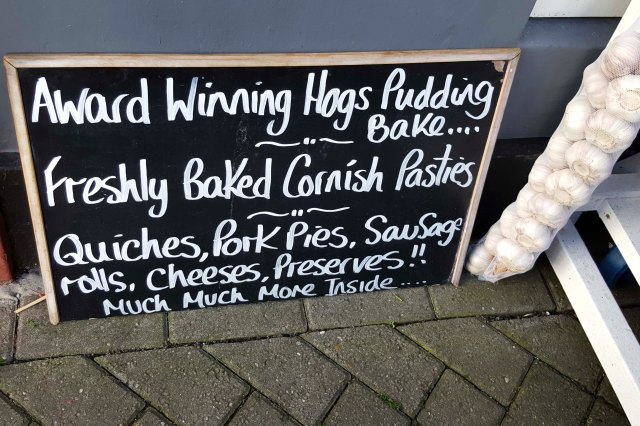 Award Winning Hogs Pudding
Bake....
Freshly Baked Cornish Pasties
Quiches, Pork Pies, Sausage
rolls, Cheeses, Preserves!!
Much Much More Inside....